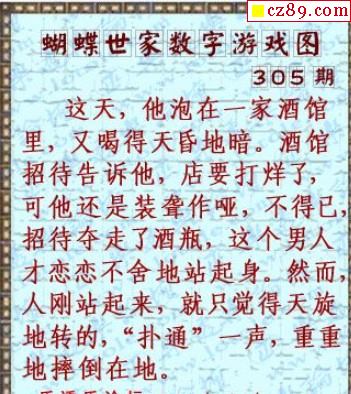 cz89.com
蝴蝶世家数字游戏图
305期
这天，他泡在一家酒馆
里，又喝得天昏地暗。酒馆
招待告诉他，店要打烊了，
可他还是装聋作哑，不得已，
招待夺走了酒瓶，这个男人
才恋恋不舍地站起身。然而，
人刚站起来，就只觉得天旋
地转的，“扑通”一声，重重
地摔倒在地。